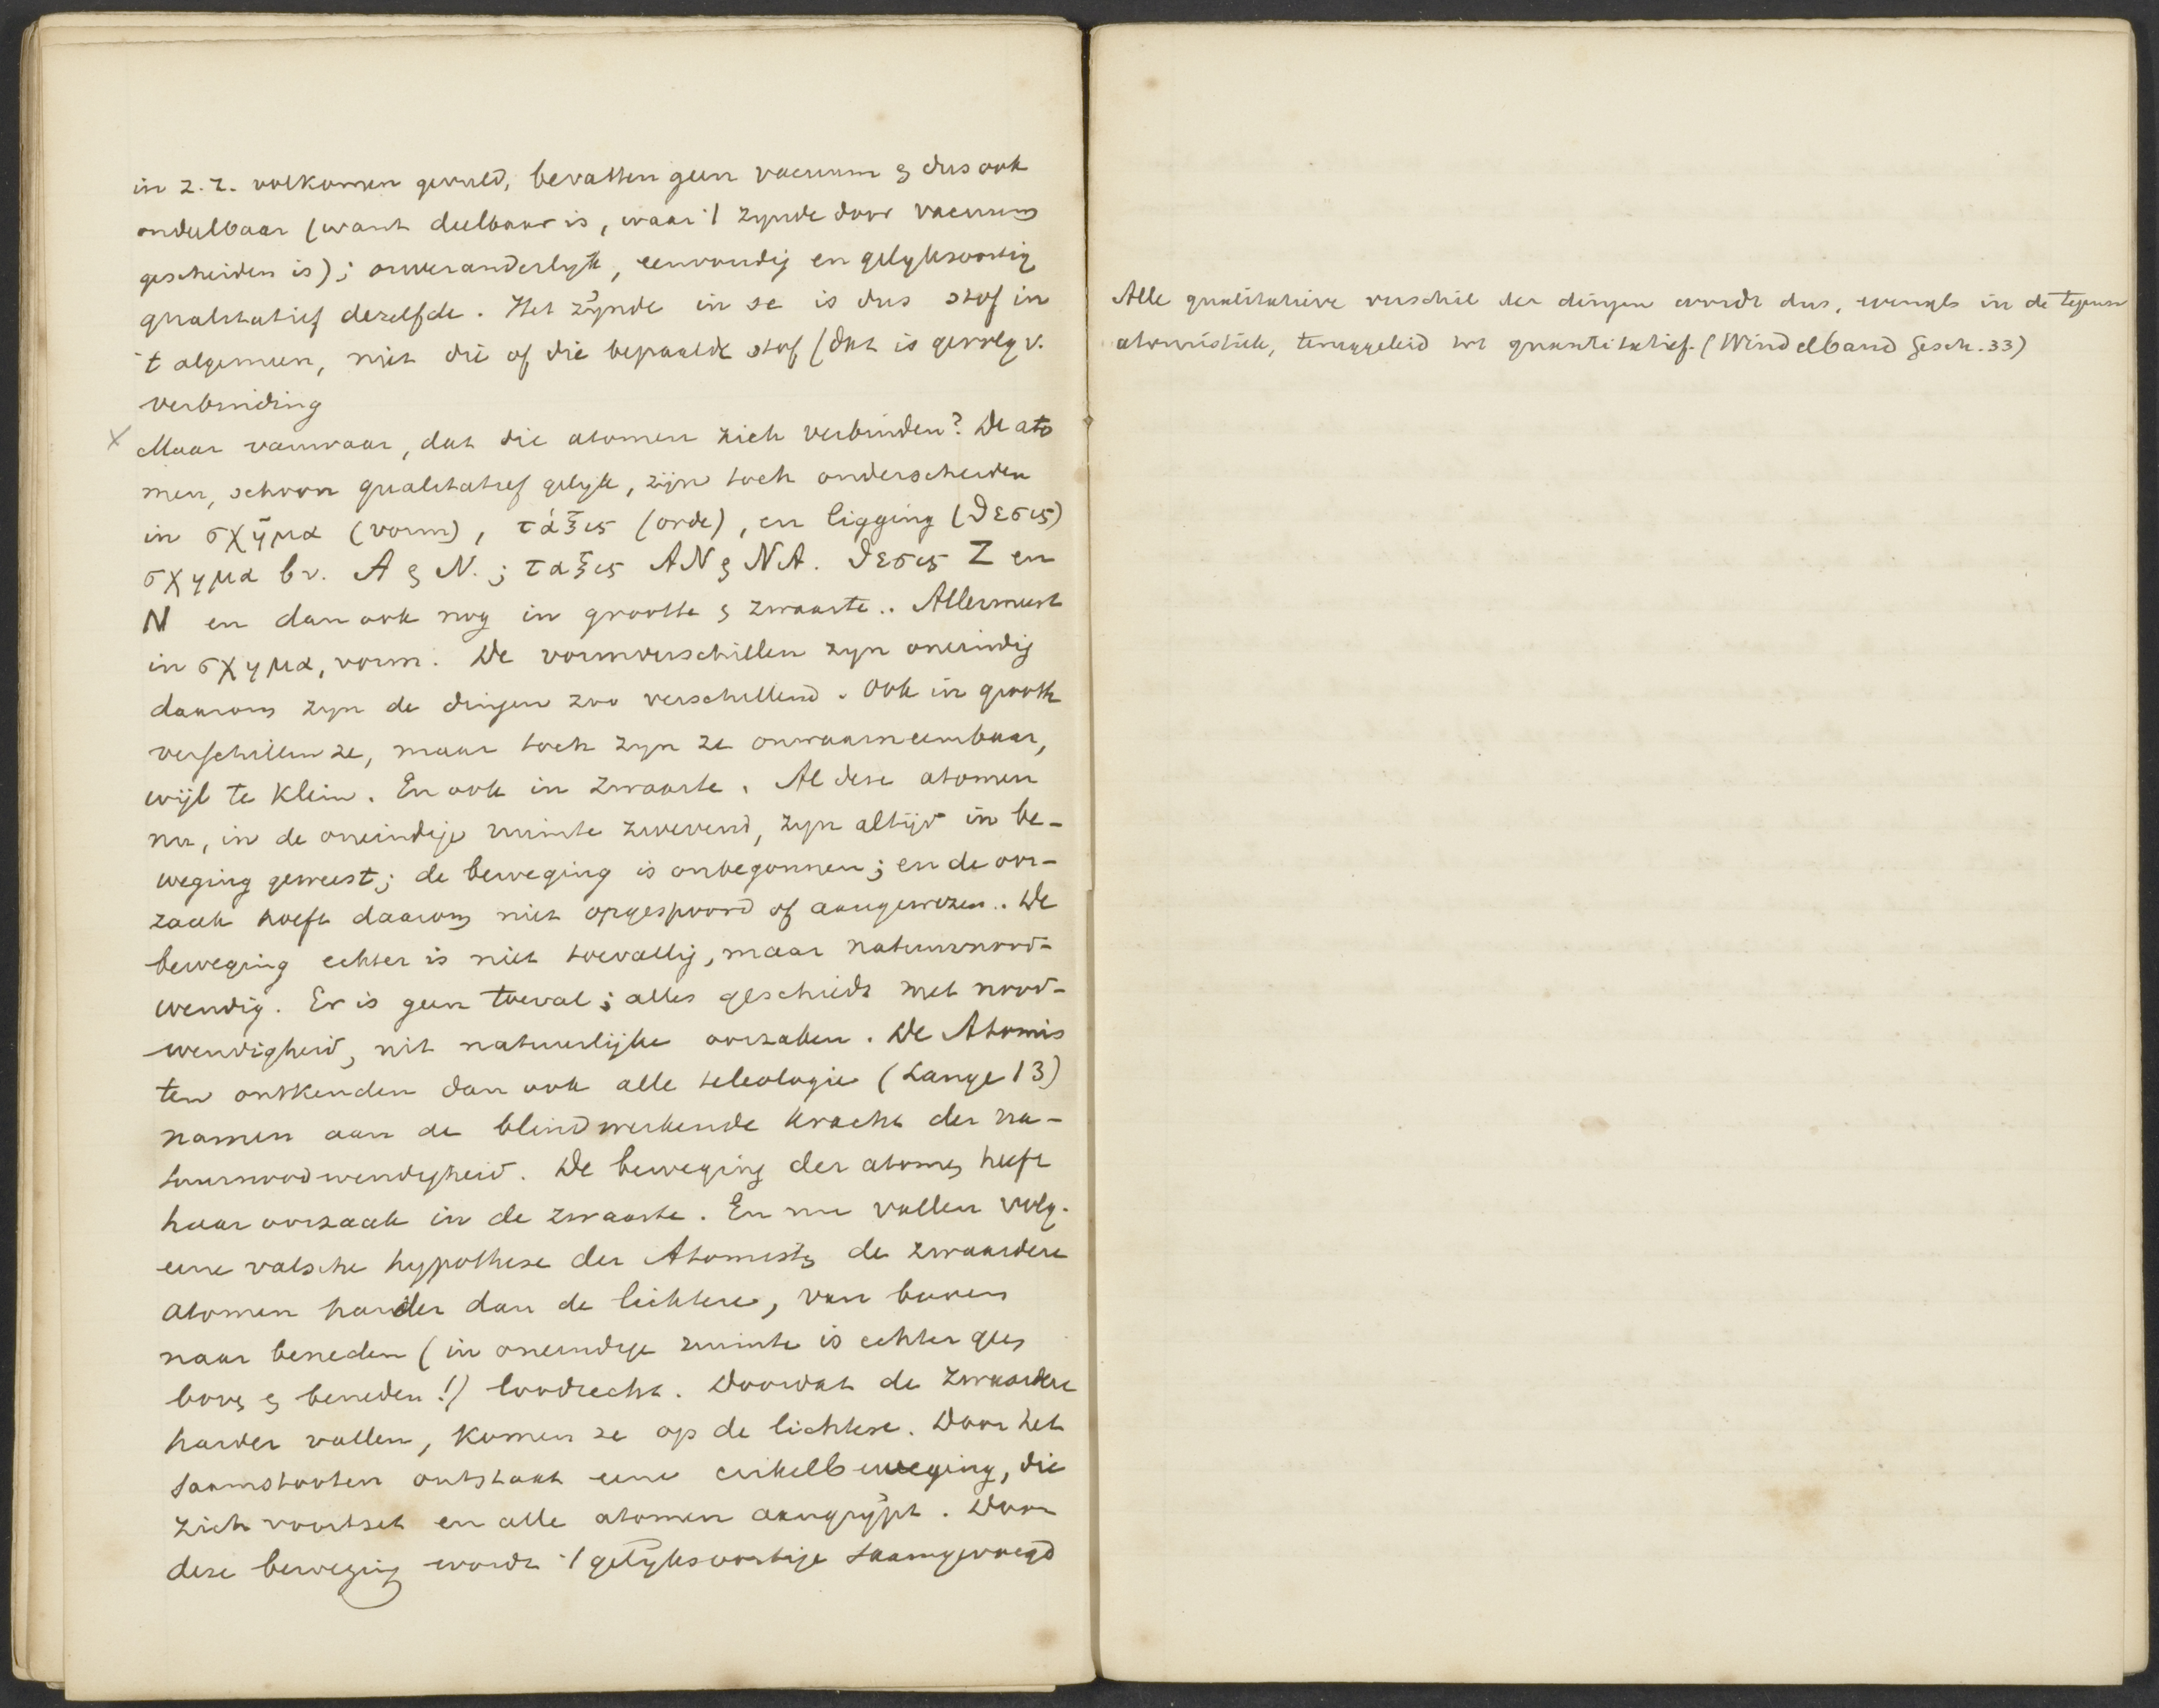 in z.z. volkomen gevuld, bevatten geen vacuum & dus ook
ondeelbaar (want deelbaar is, waar 't zynde door vacuum
gescheiden is); onveranderlyk, eenvoudig en gelyksoortig
qualitatief dezelfde. Het zijnde in se is dus stof in
't algemeen, niet die of die bepaalde stof (dat is gevolg v.
verbinding
x Maar vanwaar, dat die atomen zich verbinden? De ato
men, schoon qualitatief gelyk, zijn toch onderscheiden
in σχῆμα (vorm), τάξις (orde), en ligging (θεσις)
σχημα bv. A & N.; ταξις AN & NA. θεσις Z en
N en dan ook nog in grootte & zwaarte.. Allermeest
in σχημα, vorm. De vormverschillen zyn oneindig
daarom zyn de dingen zoo verschillend. Ook in grootte
verschillen ze, maar toch zyn ze onwaarneembaar,
wijl te klein. En ook in zwaarte. Al deze atomen
nu, in de oneindige ruimte zwevend, zyn altijd in be-
weging geweest; de beweging is onbegonnen; en de oor-
zaak hoeft daarom niet opgespoord of aangewezen.. De
beweging echter is niet toevallig, maar natuurnood-
wendig. Er is geen toeval; alles geschiedt met nood-
wendigheid, uit natuurlijke oorzaken. De Atomis
ten ontkenden dan ook alle teleologie (Lange 13)
namen aan de blindwerkende kracht der na-
tuurnoodwendigheid. De beweging der atomen heeft
haar oorzaak in de zwaarte. En nu vallen volg.
eene valsche hypothese der Atomisten de zwaardere
atomen harder dan de lichtere, van boven
naar beneden (in oneindige ruimte is echter geen
boven & beneden!) loodrecht. Doordat de zwaardere
harder vallen, komen ze op de lichtere. Door het
saamstooten ontstaat eene cirkelbeweging, die
zich voortzet en alle atomen aangrijpt. Door
deze beweging wordt 't gelijksoortige saamgevoegd
Alle qualitatieve verschil der dingen wordt dus, evenals in de tegenw
atomistiek, teruggeleid tot quantitatief. (Windelband Gesch. 33)